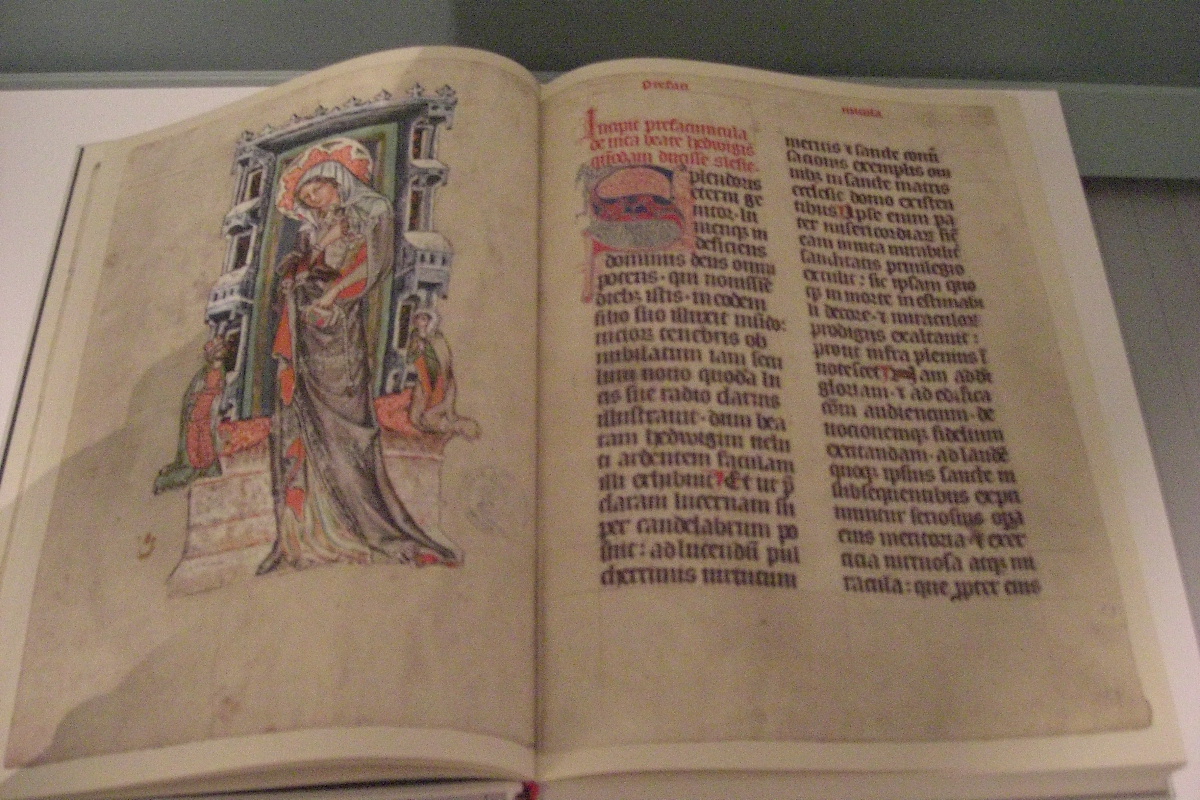 Prefan
ncula
Incipit prefaciuncula
de uita beate hedwigis
quondam ducisse slesie.
Splendoris
eterni ge
nitor. In
mensq; in
deficiens
dominus deus omni
potens. qui nouissīe
diebꝫ istis. in eodem
filio suo illuxit mūdo:
uicioꝝ tenebris ob
nubilatum iam secu
lum nouo quodā lu
cis sue radio clarius
illustrauit. dum bea
tam hedwigim uelu
ti ardentem faculam
illi exhibuit. Et ut p̄
claram lucernam su
per candelabrum po
suit: ad lucendū pul
cherrimis uirtutum
meritis ⁊ sancte conū
sacionis exemplis om
nibꝫ in sancte matris
ecclesie domo existen
tibus. Ipse enim pa
ter misericordiaꝝ sic̄
eam in uita mirabili
sanctitatis priuilegio
extulit: sic ipsam quo
qꝫ in morte inestimabi
li decore. ⁊ miraculoꝝ
prodigijs exaltauit:
prout infra plenius
notescet. am ad di
gloriam. ⁊ ad edifica
cōm audiencium. de
uocionemqꝫ fidelium
excitandam. ad laudē
quoqꝫ ipsius sancte in
subsequentibus expri
muntur seriosius opa
eius meritoria. ⁊ exer
cicia uirtuosa atqꝫ mi
racula: que ꝓpter eius